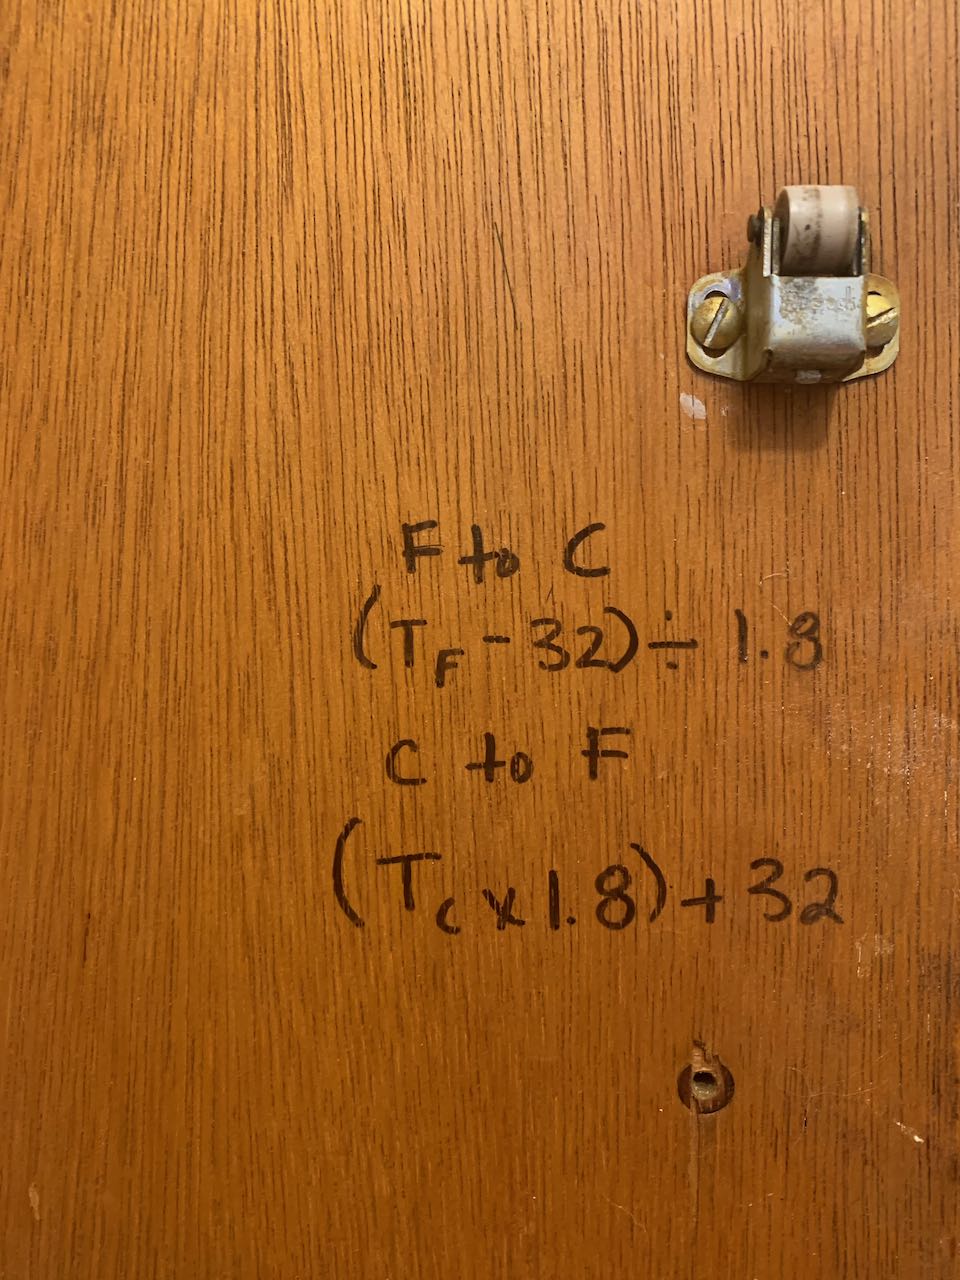 F to C
(T_F - 32) ÷ 1.8
C to F
(T_C x 1.8) + 32